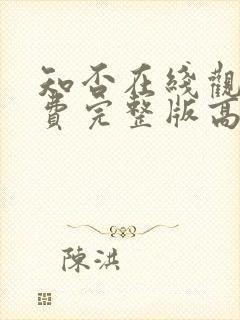 知否在綫觀
費完整版高
陳洪